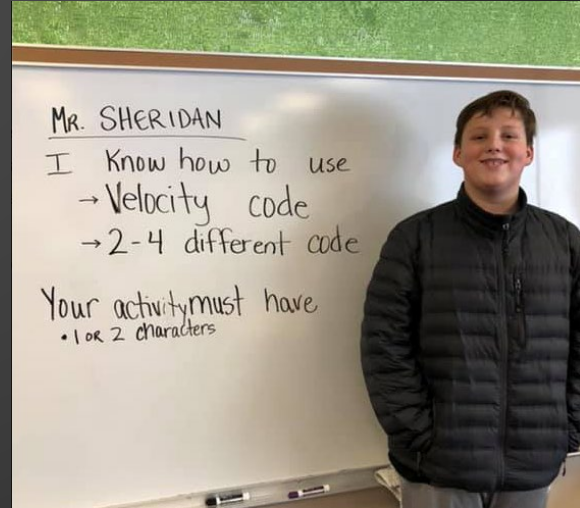 MR. SHERIDAN
I Know how to use
→ Velocity code
→ 2-4 different code
Your activity must have
• 1 OR 2 characters